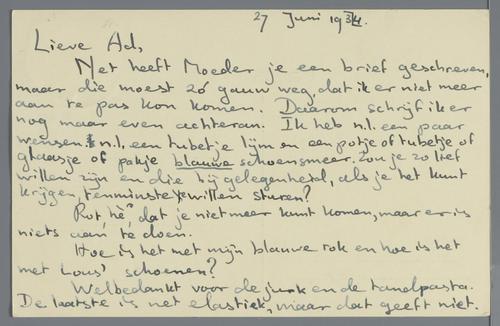 27 Juni 1944.
Lieve Ad,
Net heeft Moeder je een brief geschreven,
maar die moest zó gauw weg, dat ik er niet meer
aan te pas kon komen. Daarom schrijf ik er
nog maar even achteran. Ik heb n.l. een paar
wensen n.l. een tubetje lijm en een potje of tubetje of
glaasje of pakje blauwe schoensmeer. Zou je zo lief
willen zijn en die bij gelegenheid, als je het kunt
krijgen, tenminste, willen sturen?
Rot, hè, dat je niet meer kunt komen, maar er is
niets aan te doen.
Hoe is het met mijn blauwe rok en hoe is het
met Lous' schoenen?
Welbedankt voor de jurk en de tandpasta.
De laatste is net elastiek, maar dat geeft niet.